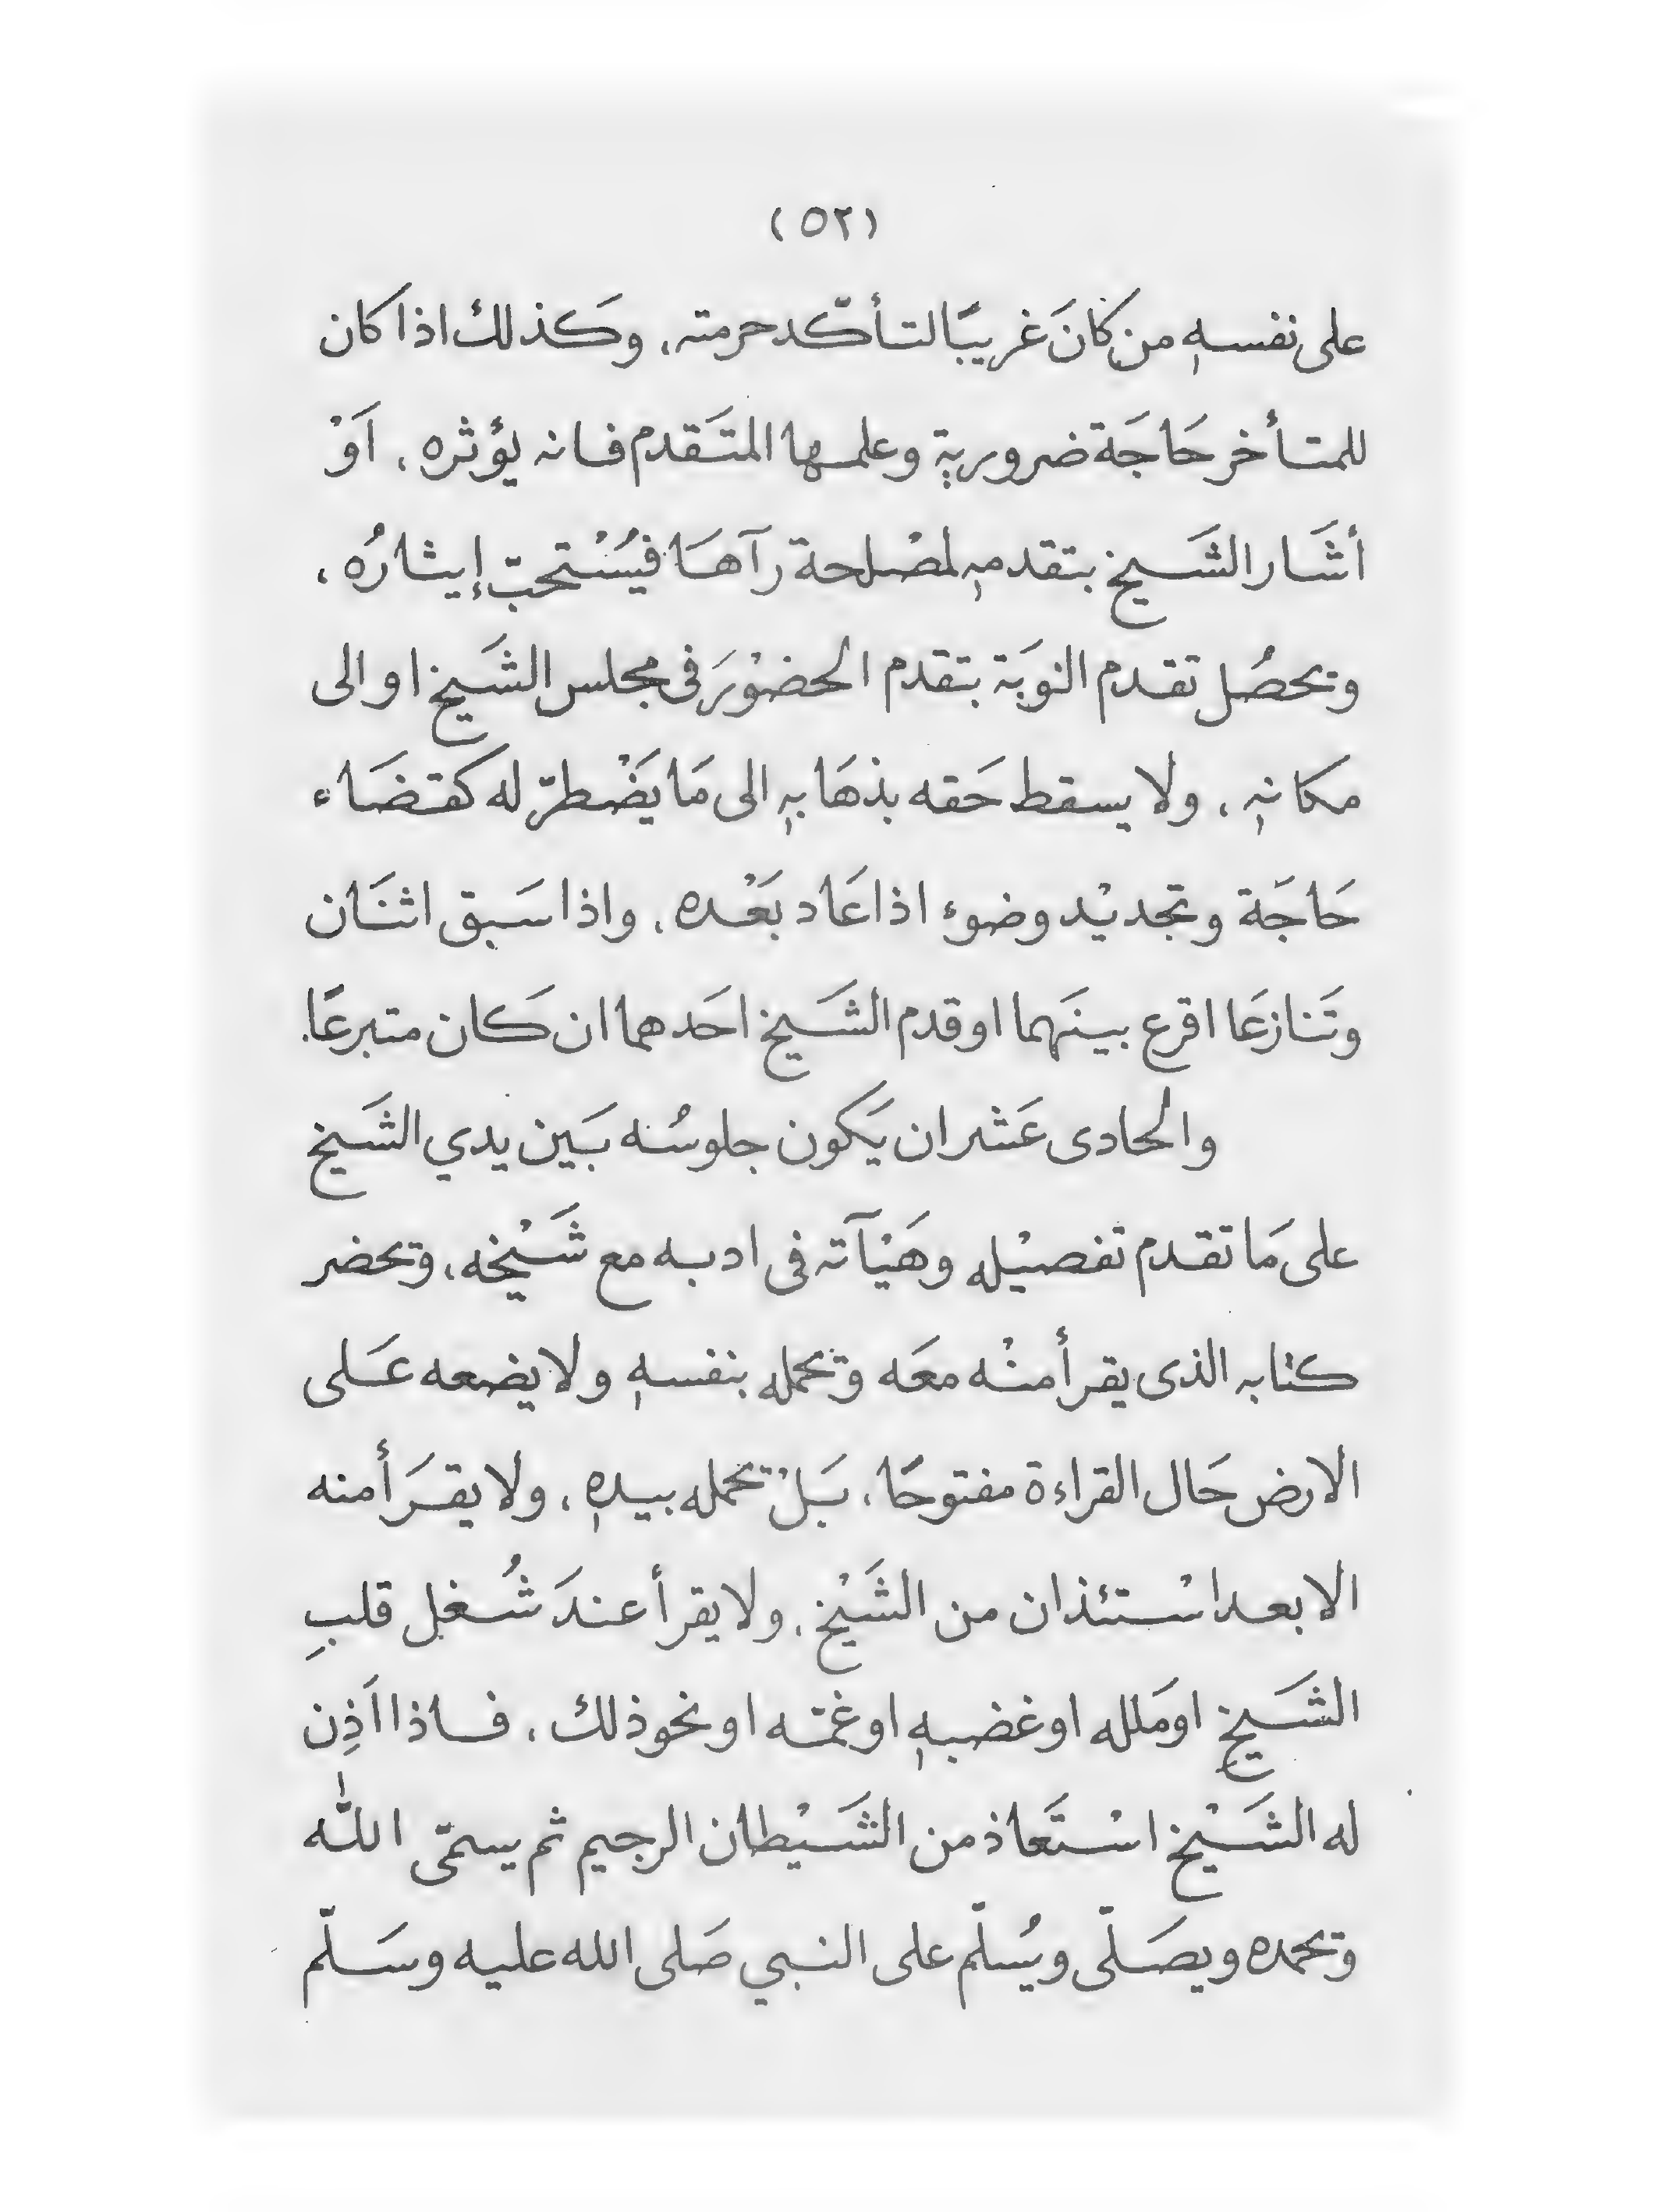 (٥٢)
على نفسهٖ من كانَ غريبًا لتأكّد حرمته، وكَذلك اذا كان
للمتأخر حَاجَة ضروريةٖ وعلمها المتَقدم فانه يؤثره، اَوْ
أشَار الشَيخ بتقدمهٖ لمصْلحة رآهَا فيُسْتحبّ إيثارُه،
ويحصُل تقدم النوبَة بتقدم الحضوْرَ فى مجلس الشَيخ او الى
مكانهٖ، ولا يسقط حَقه بذهَابهٖ الى مَا يَضْطرّ له كقضَاء
حَاجَة وتجديْد وضوء اذا عَاد بَعْده، واذا سَبق اثنَان
وتَنازعَا اقرع بينَهما او قدم الشَيخ احَدهما ان كَان متبرعًا.
والحادى عَشر ان يَكون جلوسُه بَين يدي الشَيخ
على مَا تقدم تفصيْله وهَيْآته فى ادبه مع شَيْخه، ويحضر
كتابه الذى يقرأ منْه معَه ويحمله بنفسهٖ ولا يضعه عَلى
الارض حَال القراءة مفتوحًا، بَلْ يحمله بيدهٖ، ولا يقرَأ منه
الا بعد اسْتئذان من الشَيْخ، ولا يقرأ عندَ شُغل قلبِ
الشَيخِ او مَلله او غضبهٖ او غمّه او نحو ذلك، فاذا اَذِن
له الشَيْخ اسْتَعاذ من الشَيْطان الرجيم ثم يسمّى اللّٰه
ويحمده ويصَلّى ويُسلّم على النبي صَلى الله عليه وسَلّم